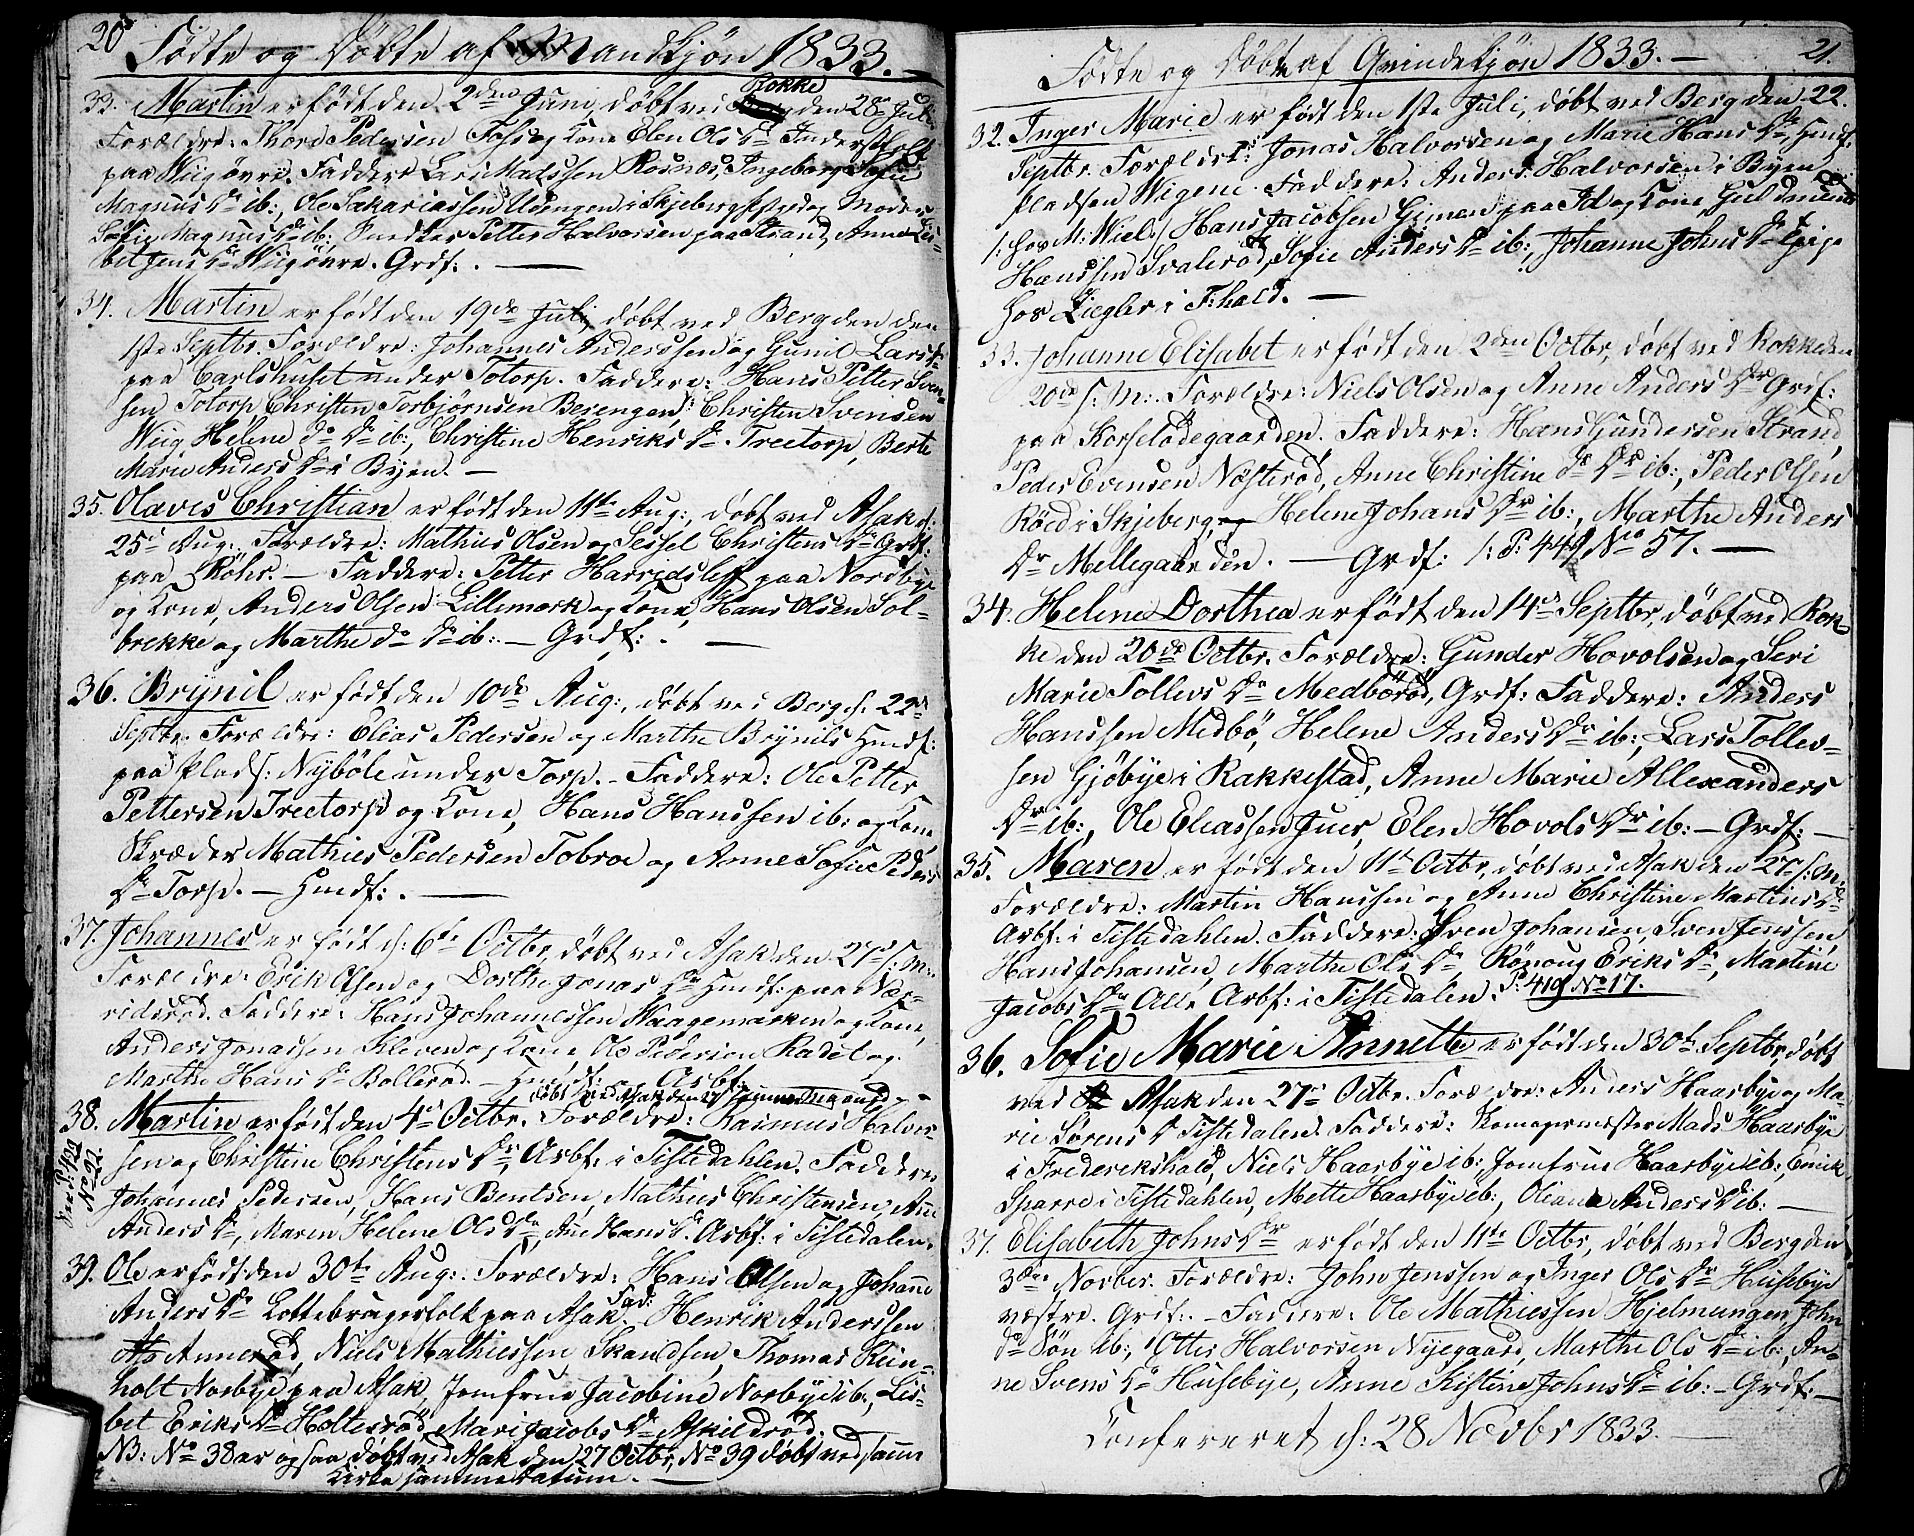 20
Födte og Döbte af Mandkjön 1833.
33. Martin er födt den 2den Juni, döbt ved Rokke den 28de Juli.
Forældre: Thore Pedersen Foss og Kone Elen Ols Dr Inderstfolk
paa Wiig övre. Faddere Lars Madssen Rosnæs, Ingeborg Sofie
Magnus Dr ib:, Ole Sakariassen Udengen i Skjeberg og Moder
Sofie Magnus Dr ib:, Smedker Petter Halvorsen paa Strand, Anne Lis-
bet Jens Dr Wiig övre. Grdf: . —
34. Martin er födt den 19de Juli, döbt ved Berg den den
1ste Septbr. Forældre: Johannes Anderssen og Gunil Lars Dr
paa Carlshuset under Totorp. Faddere: Hans Petter Sven-
sen Totorp, Christen Torbjörnsen Berengen, Christen Svensen
Wiig Helene do Dr ib:, Christine Henriks Dr Treetorp, Berte
Marie Anders Dr i Byen. —
35. Olaves Christian er födt den 11te Aug:, döbt ved Asak d:
25de Aug: Forældre: Mathies Olsen og Sessel Christens Dr Grdf:
paa Röhr. — Faddere: Petter Harridsleff paa Nordbye
og Kone, Anders Olsen Lillemork og Kone, Hans Olsen Sol-
brekke og Marthe do Dr ib: — Grdf: . —
36. Brynil er födt den 10de Aug:, döbt ved Berg d. 22de
Septbr. Forældre: Elias Pedersen og Marthe Brynils Hmdf:
paa Plads: Nyböle under Torp. — Faddere: Ole Petter
Pettersen Treetorp og Kone, Hans Hanssen ib: og Kone
Skræder Mathies Pedersen Tobroe og Anne Sofie Peders
Dr Torp. — Hmdf: . —
37. Johannes er födt d: 6te Octbr, döbt ved Asak den 27de s: M:
Forældre: Erik Olsen og Dorthe Jonas Dr Hmdf: paa Nær-
ridsröd. Faddere: Hans Johannessen Haagemarken og Kone,
Anders Jonassen Kleven og Kone, Ole Pedersen Radet og
Marthe Hans Dr Bolleröd. — Hmdf: — Arbf:
döbt ved Asak den 27 samme Maaned
38. Martin er födt den 4de Octbr. Forældre: Rasmus Halvor-
sen og Christine Christens Dr, Arbf: i Tistedahlen. Faddere
Johannes Pedersen, Hans Bentsen, Mathies Christensen, Ane
Anders Dr, Maren Helene Ols Dr, Ane Hans Dr Arbf: i Tistedalen.
P: 420 No 22.
39. Ole er födt den 30te Aug: Forældre: Hans Olsen og Johanne
Anders Dr Lottebrugerfolk paa Asak. Fad: Henrik Anderssen
Anneröd, Niels Mathiessen Skandsen, Thomas Rein-
holt Norbye paa Asak, Jomfrue Jacobine Norbye ib:, Lis-
bet Eriks Dr Holteröd, Mari Jacobs Dr Askildröd.
NB: No 38 er ogsaa döbt ved Asak den 27 Octbr, No 39 döbt ved samme
Kirke samme Datum. —
21.
Födte og Döbte af Qvindekjön 1833. —
32. Inger Marie er födt den 1ste Juli, döbt ved Berg den 22.
Septbr. Forældre: Jonas Halvorsen og Marie Hans Dr, Hmdf:
Pladsen Wigene. Faddere: Anders Halvorsen i Byen
/: hos M: Wiel :/ Hans Jacobsen Gimen paa Id og Kone Guld
Hanssen Svaleröd, Sofie Anders Dr ib:, Johanne Johns Dr Pige
hos Ziegler i F:hald. —
33. Johanne Elisabet er födt den 2den Octbr, döbt ved Rokke den
20de s: M: Forældre: Niels Olsen og Anne Anders Dr Grdf:
paa Korselödegaarden. Faddere: Hans Gundersen Strand,
Peder Evensen Næsteröd, Anne Christine do Dr ib:, Peder Olsen
Röed i Skjeberg, Helene Johans Dr ib:, Marthe Anders
Dr Mellegaarden. — Grdf: /: P: 449 No 57. —
34. Helene Dorthea er födt den 14de Septbr, döbt ved Rok-
ke den 20de Octbr. Forældre: Gunder Hovolsen og Siri
Marie Tollevs Dr Medböröd, Grdf: Faddere: Anders
Hanssen Medbö, Helene Anders Dr ib:, Lars Tollev-
sen Gjöbye i Rakkestad, Anne Marie Allexanders
Dr ib:, Ole Eliassen Juer, Elen Hovols Dr ib: — Grdf: —
35. Maren er födt den 11te Octbr, döbt ved Asak den 27de s: M:
Forældre: Martin Hanssen og Anne Christine Martins Dr
Arbf: i Tistedahlen. Faddere: Sven Johansen, Sven Jenssen
Hans Johansen, Marthe Ols Dr, Rönoug Eriks Dr, Martine
Jacobs Dr Alle Arbf: i Tistedalen. P: 419 No 17.
36. Sofie Marie Annette er födt den 30te Septbr, döbt
ved Asak den 27de Octbr. Forældre: Anders Haarbye og Ma-
rie Sörens Dr Tistedalen. Faddere: Skomagermester Mads Haarbye
i Frederikshald, Niels Haarbye ib: Jomfrue Haarbye ib:, Enick
Sparre i Tistedahlen, Mette Haarbye ib:, Oliane Anders Dr ib: —
37. Elisabeth Johns Dr er födt den 11te Octbr, döbt ved Berg den
3die Novber. Forældre: John Jenssen og Inger Ols Dr Husebye
væstre. Grdf: — Faddere: Ole Mathiessen Hjelmungen, John
do Sön ib:, Otter Halvorsen Nyegaard, Marthe Ols Dr ib:, An-
ne Svens Dr Husebye, Anne Kistine Johns Dr ib: — Grdf: —
Confereret d: 28 Novbr 1833. —